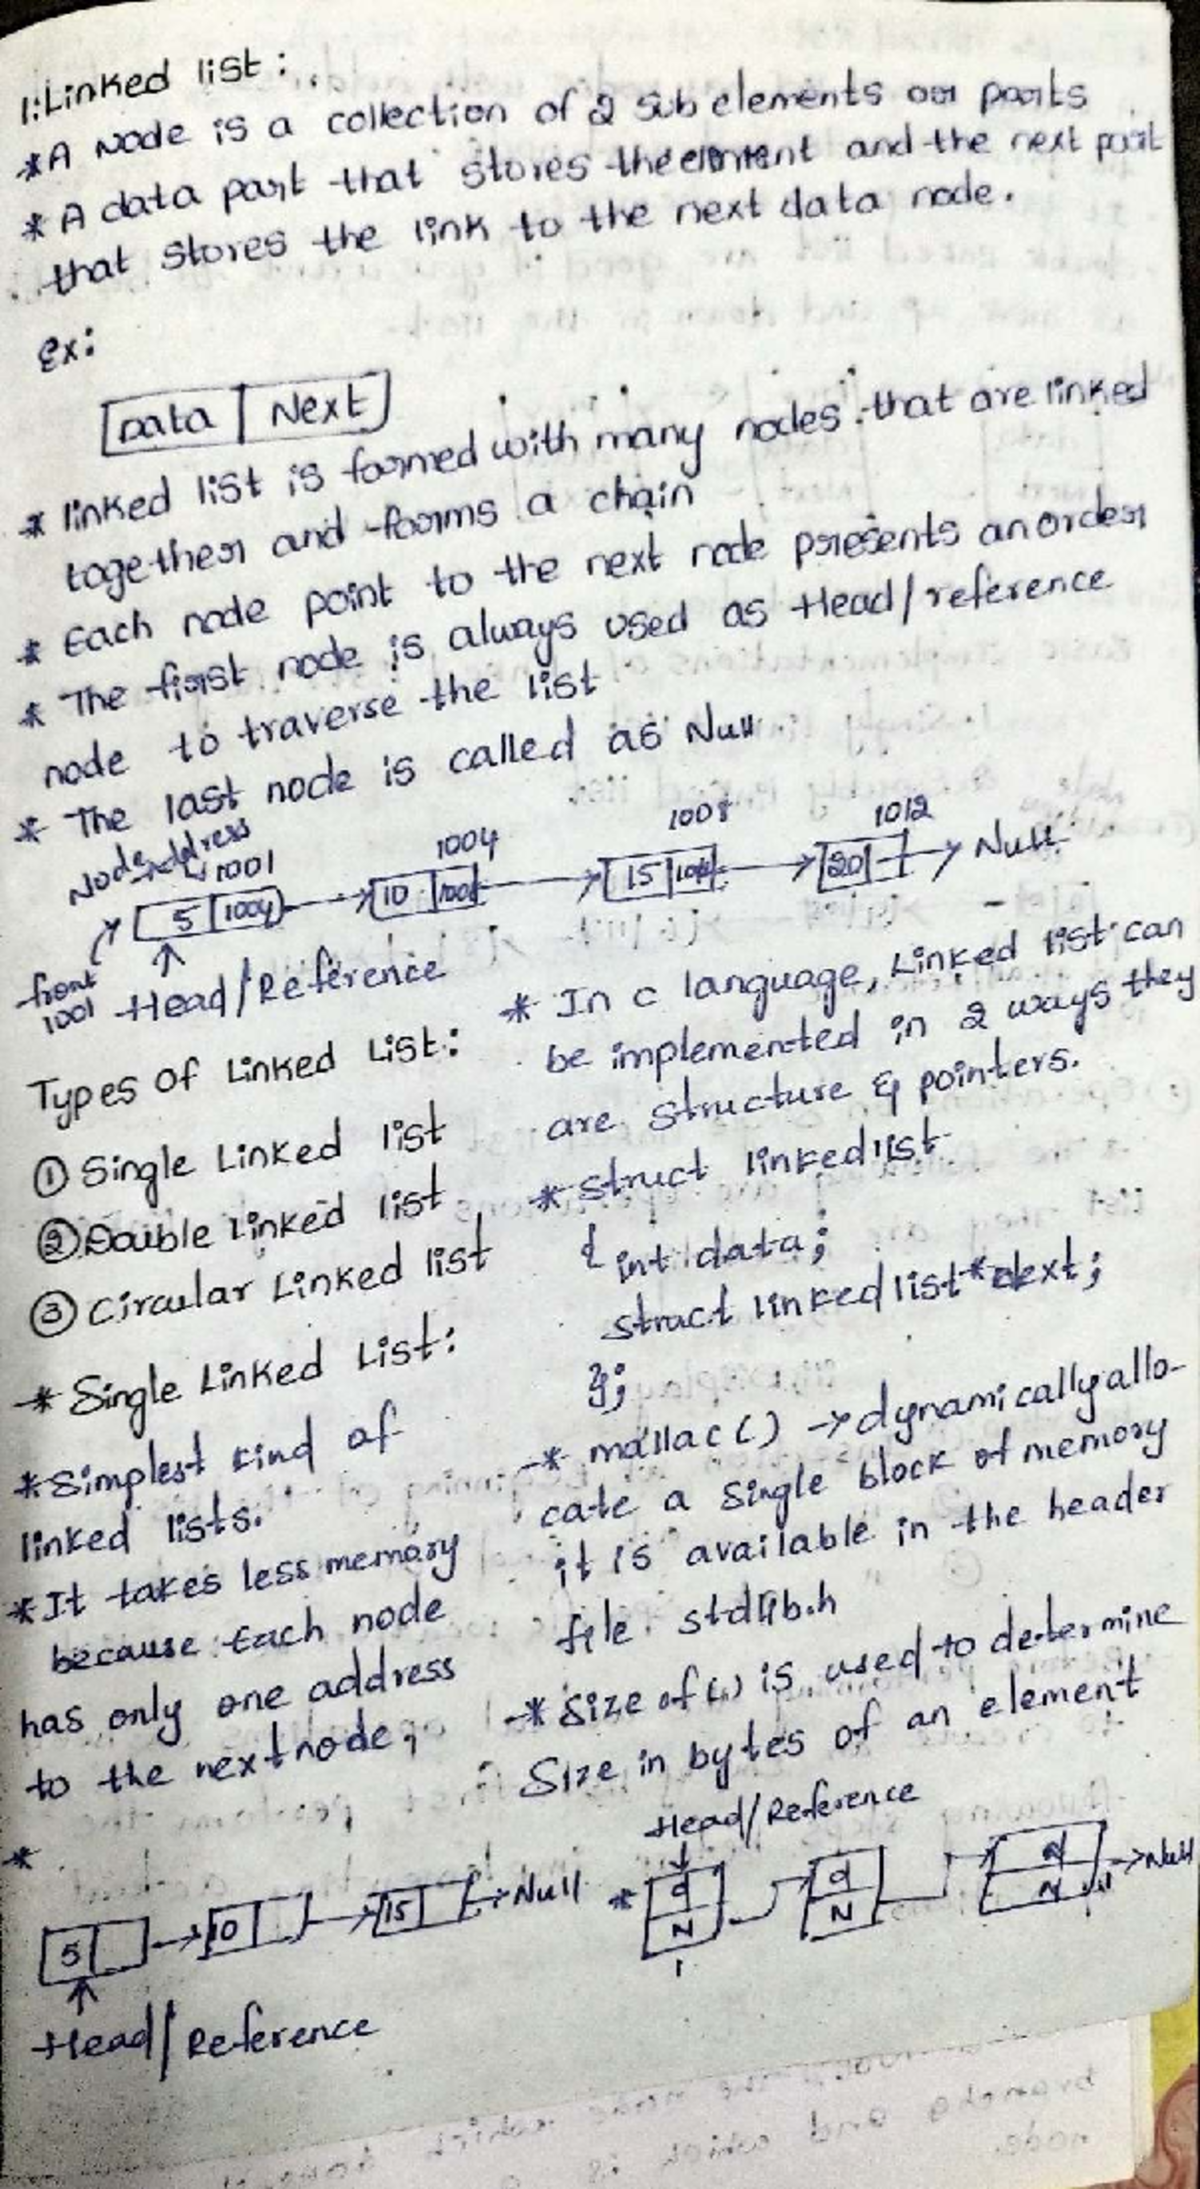 1. Linked list:
* A Node is a collection of 2 sub elements or parts
* A data part that stores the element and the next part
that stores the link to the next data node.
Ex:
Data | Next
* linked list is formed with many nodes that are linked
together and forms a chain
* Each node point to the next node presents an order
* The first node is always used as Head/reference
node to traverse the list
* The last node is called as Null
Node address
1001 1004 1008 1012
5 | 1004 10 | 1008 15 | 1012 20 Null
front
1001
Head/Reference
Types of Linked List:
① Single Linked list
② Double linked list
③ Circular Linked list
* Single Linked List:
* Simplest kind of
linked lists.
* It takes less memory
because Each node
has only one address
to the next node,
*
5 10 15 Null
Head/Reference
* In c language, Linked list can
be implemented in 2 ways they
are structure & pointers.
* struct linkedlist
{ int data;
struct linked list *next;
};
* mallac() → dynamically allo-
cate a single block of memory
it is available in the header
file stdlib.h
* Size of () is used to determine
Size in bytes of an element
Head/Reference
* d d d Null
N N N